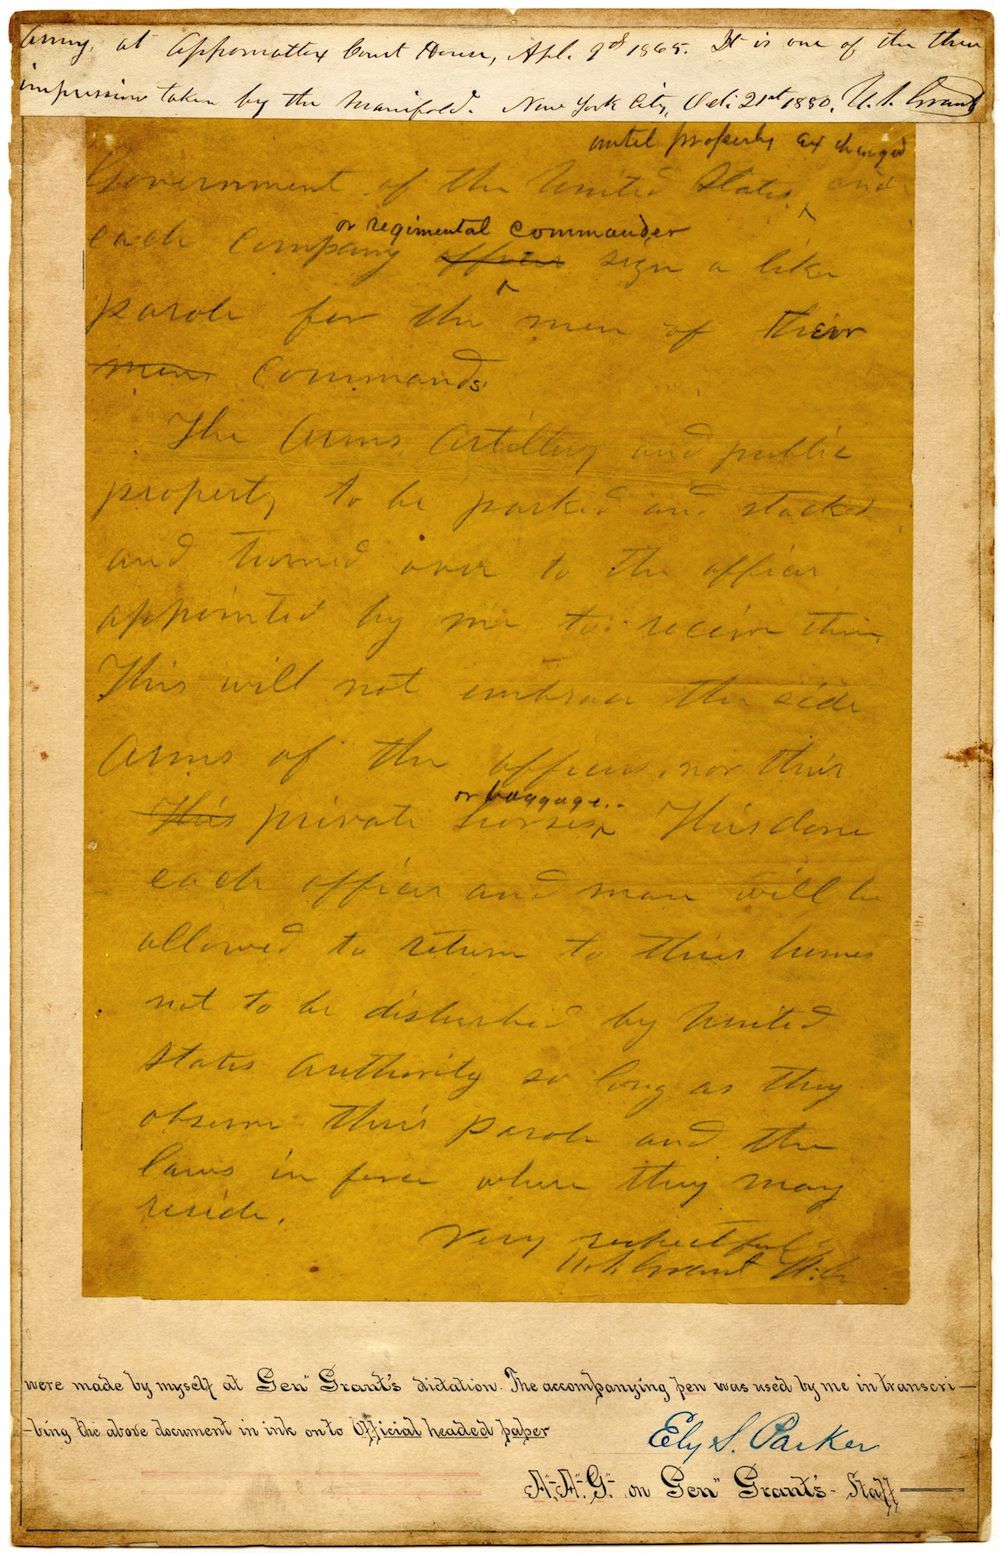 Army, at Appomattox Court House, Apl. 9th 1865. It is one of the three
impressions taken by the Manifold. New York City, Oct. 21st 1880, U.S. Grant
until properly exchanged
Government of the United States and
or regimental commander
each company officer sign a like
parole for the men of their
men commands.
The Arms, Artillery and public
property to be parked and stacked
and turned over to the officer
appointed by me to receive them
This will not embrace the side
Arms of the officers, nor their
or baggage..
This private horses This done
each officer and man will be
allowed to return to their homes
not to be disturbed by United
States Authority so long as they
observe their parole and the
laws in force where they may
reside.
Very respectfully
U.S. Grant
were made by myself at Gen" Grant's dictation. The accompanying pen was used by me in transcri-
-bing the above document in ink onto Official headed paper
Ely S. Parker
A-A-G- on Gen" Grant's- Staff